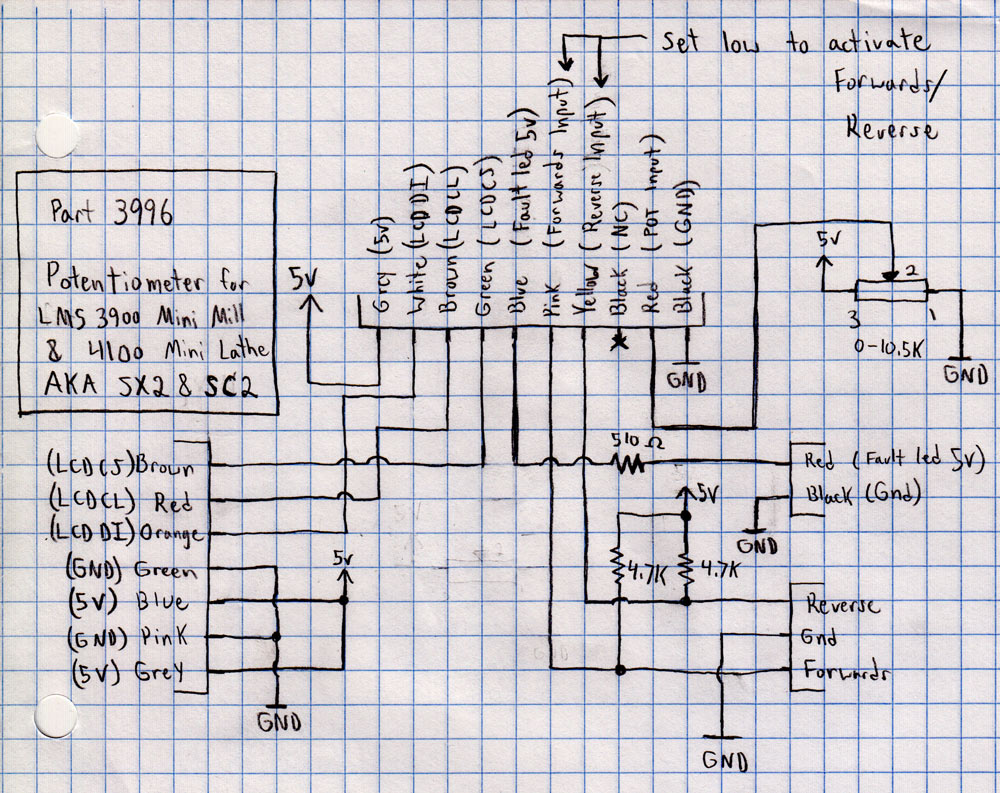 Set low to activate
Forwards/
Reverse
Part 3996
Potentiometer for
LMS 3900 Mini Mill
& 4100 Mini Lathe
AKA SX2 & SC2
5V
Grey (5v)
White (LCD DI)
Brown (LCD CL)
Green (LCD CS)
Blue (Fault led 5v)
Pink (Forwards Input)
Yellow (Reverse Input)
Black (NC)
Red (POT Input)
Black (GND)
GND
5V
2
3
1
0-10.5K
GND
(LCD CS) Brown
(LCD CL) Red
(LCD DI) Orange
(GND) Green
(5V) Blue
(GND) Pink
(5V) Grey
5v
GND
510 Ω
Red (Fault led 5V)
Black (Gnd)
GND
5V
4.7K
4.7K
Reverse
Gnd
Forwards
GND